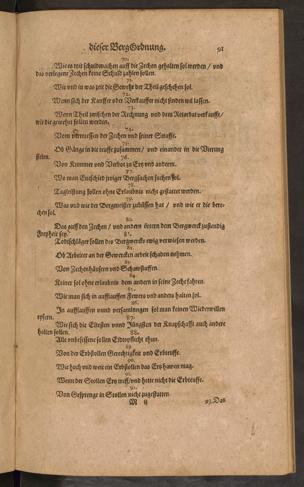 dieser BergOrdnung. 91
70.
Wie es mit schuldmachen auff die Zechen gehalten sol werden / und
das verlegene Zechen keine Schuld zahlen sollen.
71.
Wie und in was zeit die Gewehr der Theil geschehen sol.
72.
Wenn sich der Kauffer oder Verkauffer nicht finden wil lassen.
73.
Wenn Theil zwischen der Rechnung und dem Retardat verkaufft/
wie die gewehrt sollen werden.
74.
Vom vermessen der Zechen und seiner Straffe.
75.
Ob Gänge in die teuffe zusammen / und einander in die Vierung
fielen.
76.
Von Kummer und Verbot zu Ertz und andern.
77.
Wo man Entschied jeniger Bergsachen suchen sol.
78.
Tagleistung sollen ohne Erlaubnis nicht gestattet werden.
79.
Was und wie der Bergmeister zubüssen hat / und wie er die
sol.
80.
Das auff den Zechen / und andern örtern dem Bergwerck zustendig
Freyheit sey.
81.
Todtschläger sollen des Bergwercks ewig verwiesen werden.
82.
Ob Arbeiter an der Gewercken arbeit schaden nehmen.
83.
Von Zechenhäusern und
84.
Keiner sol ohne erlaubnis dem andern in seine Zeche fahren.
85.
Wie man sich in aufflauffen Fewers und anders halten sol.
86.
In aufflaufften unnd versamlungen sol man keinen Wiederwillen
eyfern.
87.
Wie sich die Eltesten unnd Jüngsten der Knapschafft auch andere
halten sollen.
88.
Alle unbesessene sollen Eidtspflicht thun.
89.
Von der Erbstollen Gerechtigkeit und Erbteuffe.
90.
Wie hoch und weit ein Erbstollen das Ertz hawen mag.
91.
Wenn der Stollen Ertz treff/und hette nicht die Erbteuffe.
92.
Von Gesprenge in Stollen nicht zugestatten.
M ij 93. Das